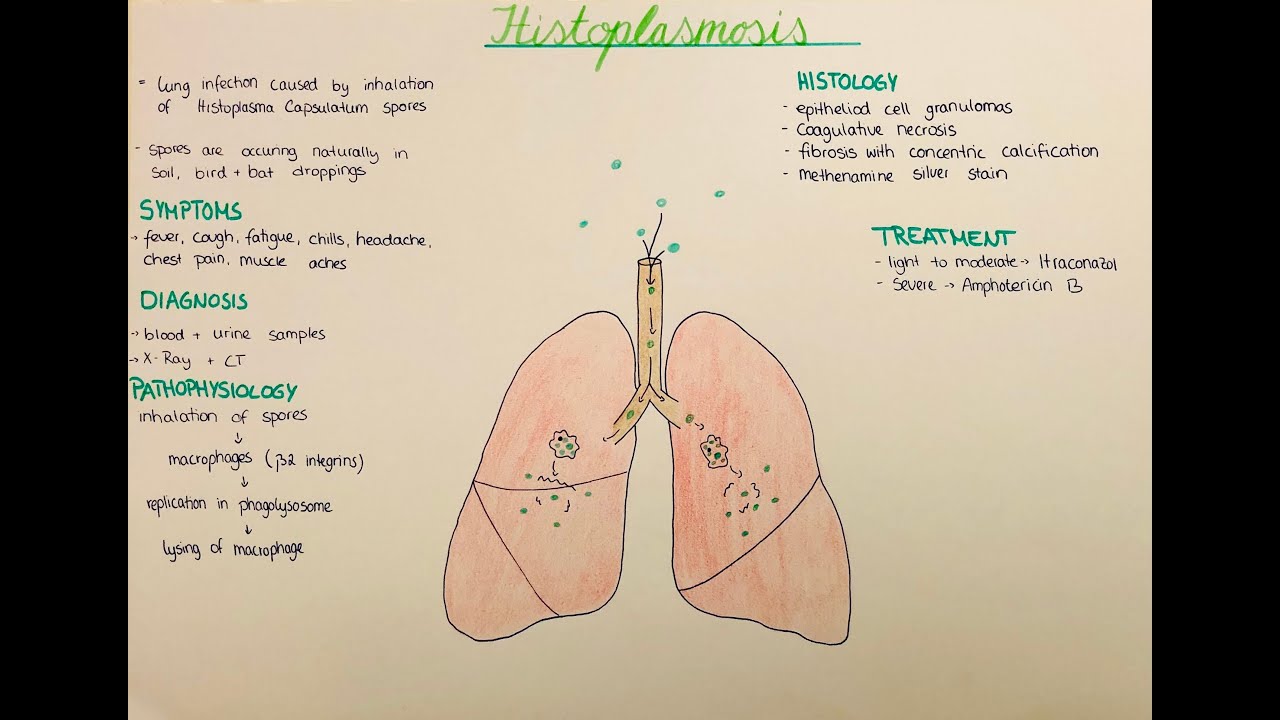 Histoplasmosis
= lung infection caused by inhalation
of Histoplasma Capsulatum spores
- spores are occuring naturally in
soil, bird + bat droppings
SYMPTOMS
→ fever, cough, fatigue, chills, headache,
chest pain, muscle aches
DIAGNOSIS
→ blood + urine samples
→ X-Ray + CT
PATHOPHYSIOLOGY
inhalation of spores
↓
macrophages (β2 integrins)
↓
replication in phagolysosome
↓
lysing of macrophage
HISTOLOGY
- epitheliod cell granulomas
- Coagulative necrosis
- fibrosis with concentric calcification
- methenamine silver stain
TREATMENT
- light to moderate → Itraconazol
- Severe → Amphotericin B